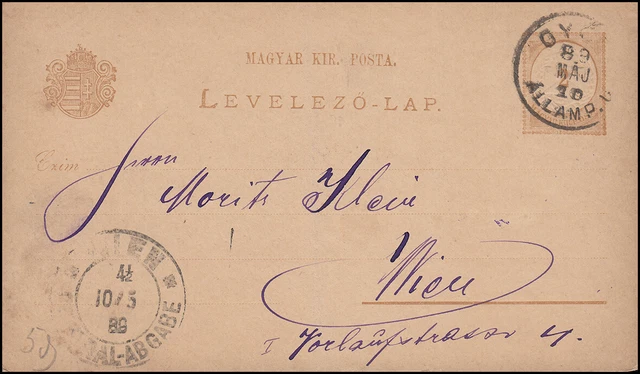 MAGYAR KIR. POSTA.
LEVELEZŐ-LAP.
GY
89
MÁJ
10
ÁLLAMP.U
2
Czim
Herrn
Moritz Klein
Wien
I Vorlaufstrasse 4.
WIEN
4½
10/5
89
AL-ABGABE